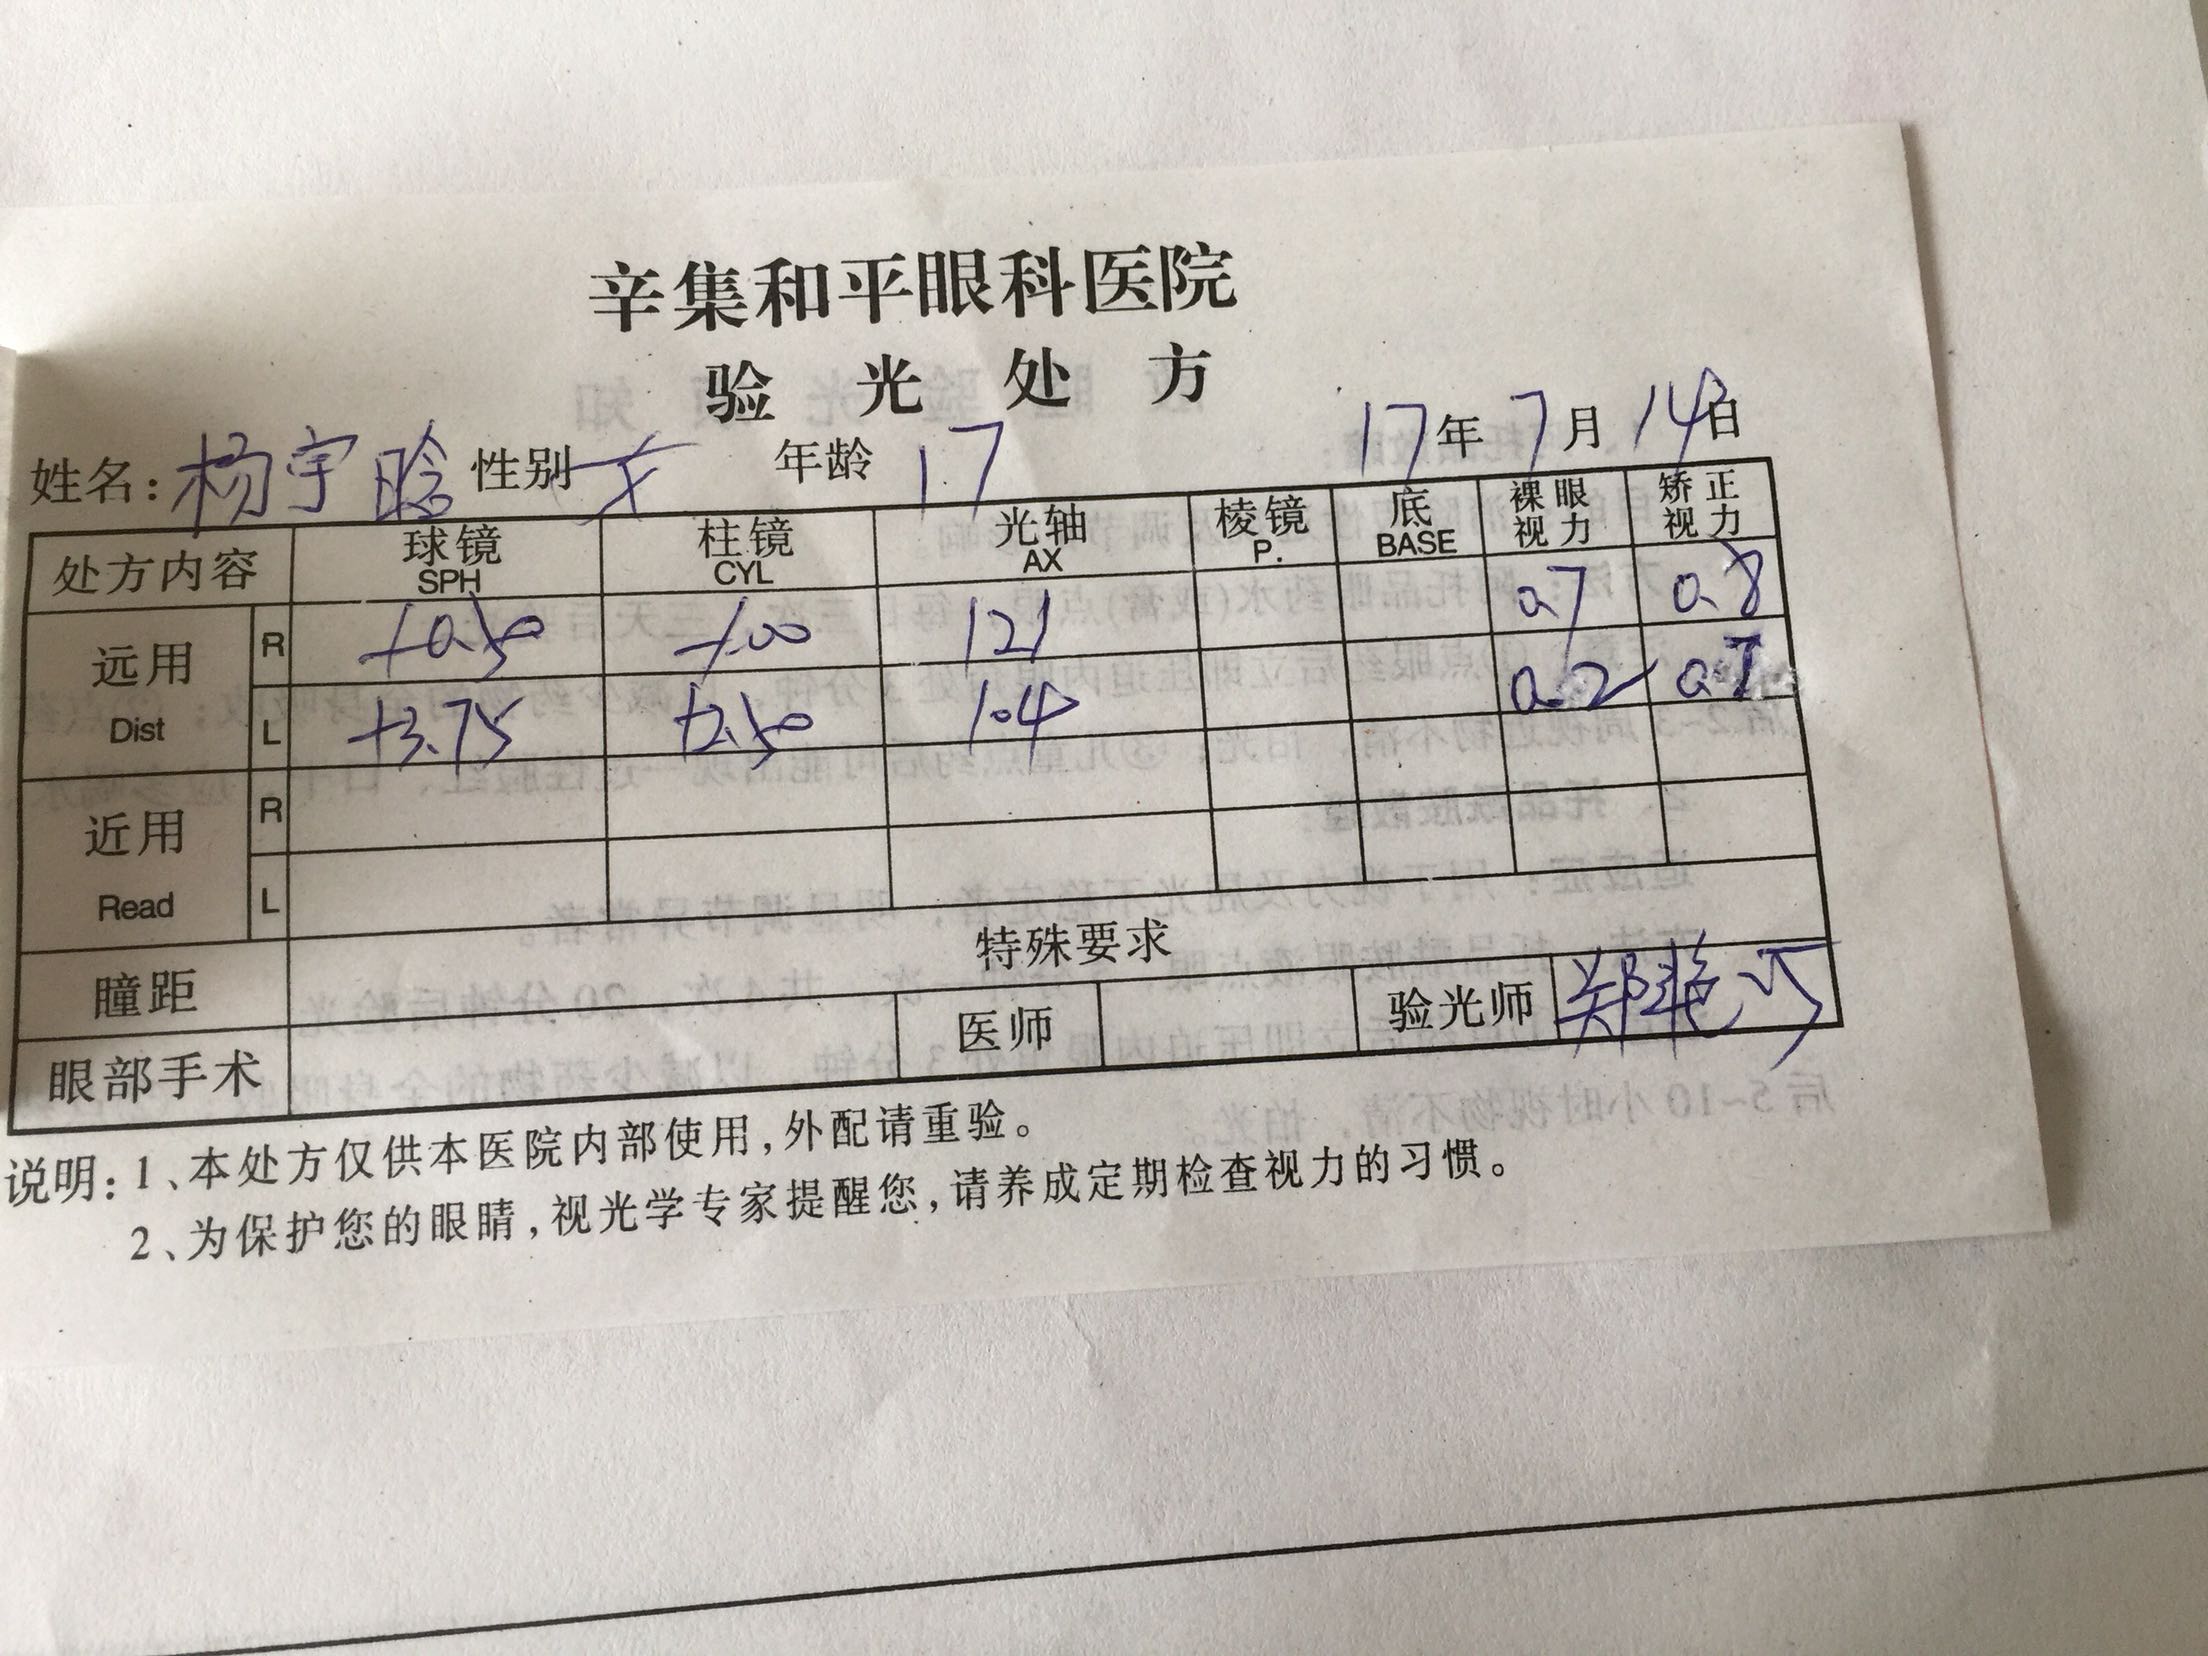 辛集和平眼科医院
验光处方
姓名: 杨宇晗 性别 女 年龄 17 17年7月14日
处方内容 球镜 SPH 柱镜 CYL 光轴 AX 棱镜 P. 底 BASE 裸眼视力 矫正视力
远用 Dist R +0.50 +1.00 121 0.7 0.8
L +3.75 +2.50 104 0.2 0.7
近用 Read R
L
瞳距 特殊要求
眼部手术 医师 验光师 郑艳巧
说明: 1、本处方仅供本医院内部使用,外配请重验。
2、为保护您的眼睛,视光学专家提醒您,请养成定期检查视力的习惯。